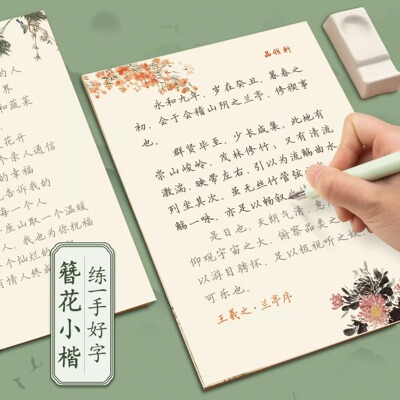 的人
界
和蔬菜
花开
个亲人通信
的幸福
告诉我的
每一个人
座山取一个温暖
人，我也为你祝福
个灿烂的
有情人终成
永和九年，岁在癸丑，暮春之
初，会于会稽山阴之兰亭，修禊事
也。
群贤毕至，少长咸集。此地有
崇山峻岭，茂林修竹；又有清流
激湍，映带左右，引以为流觞曲水
列坐其次，虽无丝竹管弦
觞一咏，亦足以畅叙
是日也，天朗气清，惠
仰观宇宙之大，俯察品类之
以游目骋怀，足以极视听之娱
可乐也。
王羲之·兰亭序
练一手好字
簪花小楷